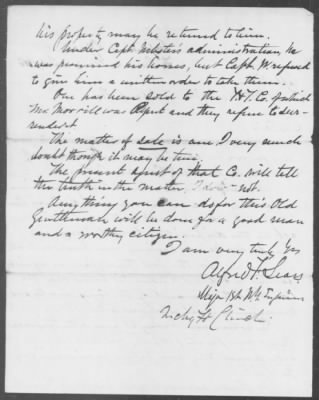 his property may be returned to him.
Under Capt. Websters administration, he
was promised his horses, but Capt. W. refused
to give him a written order to take them.
One has been sold to the Co. of which
Mr. Morrill was and they refuse to sur-
render it.
The matter of sale is one I very much
doubt though it may be true.
The present of that Co. will tell
the truth in the matter, I not.
Anything you can do for this Old
Gentleman will be done for a good man
and a worthy citizen.
I am very truly Yrs
Alfred F. Sears
Maj. 1st N.Y. Engineers
Ft. Clinch.